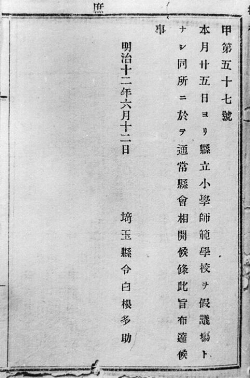 庶
甲第五十七號
本月廿五日ヨリ縣立小學師範學校ヲ假議塲ト
ナシ同所ニ於テ通常縣會相開候條此旨布達候
事
明治十二年六月十二日
埼玉縣令白根多助